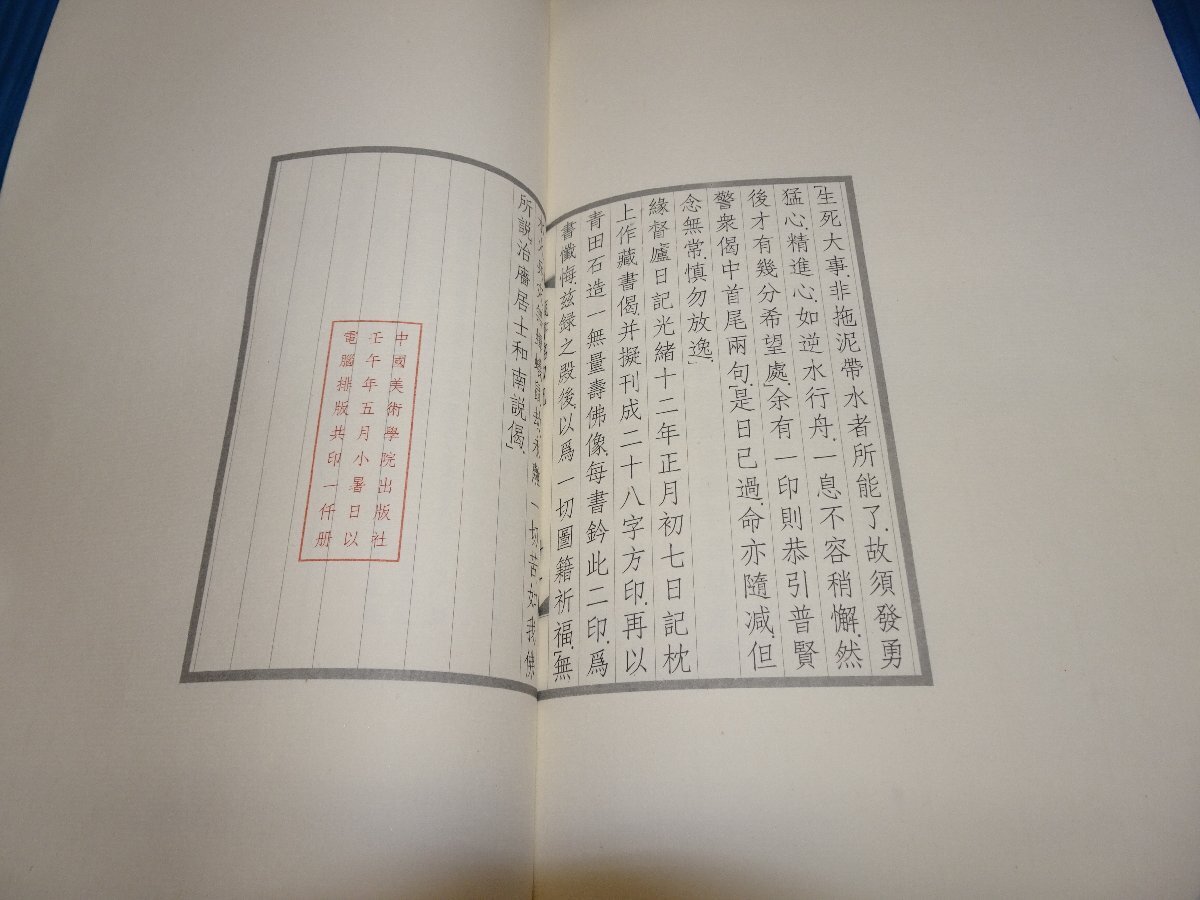 「生死大事、非拖泥帶水者所能了、故須發勇
猛心、精進心、如逆水行舟、一息不容稍懈、然
後才有幾分希望處」余有一印則恭引普賢
警衆偈中首尾兩句、「是日已過、命亦隨減、但
念無常、慎勿放逸」
緣督廬日記光緒十二年正月初七日記枕
上作藏書偈、并擬刊成二十八字方印、再以
青田石造一無量壽佛像、每書鈐此二印、爲
書懺悔、兹録之殿後、以爲一切圖籍祈福、「無
一切苦如我佛
所説、治廧居士和南説偈」、
中國美術學院出版社
壬午年五月小暑日以
電腦排版共印一仟册